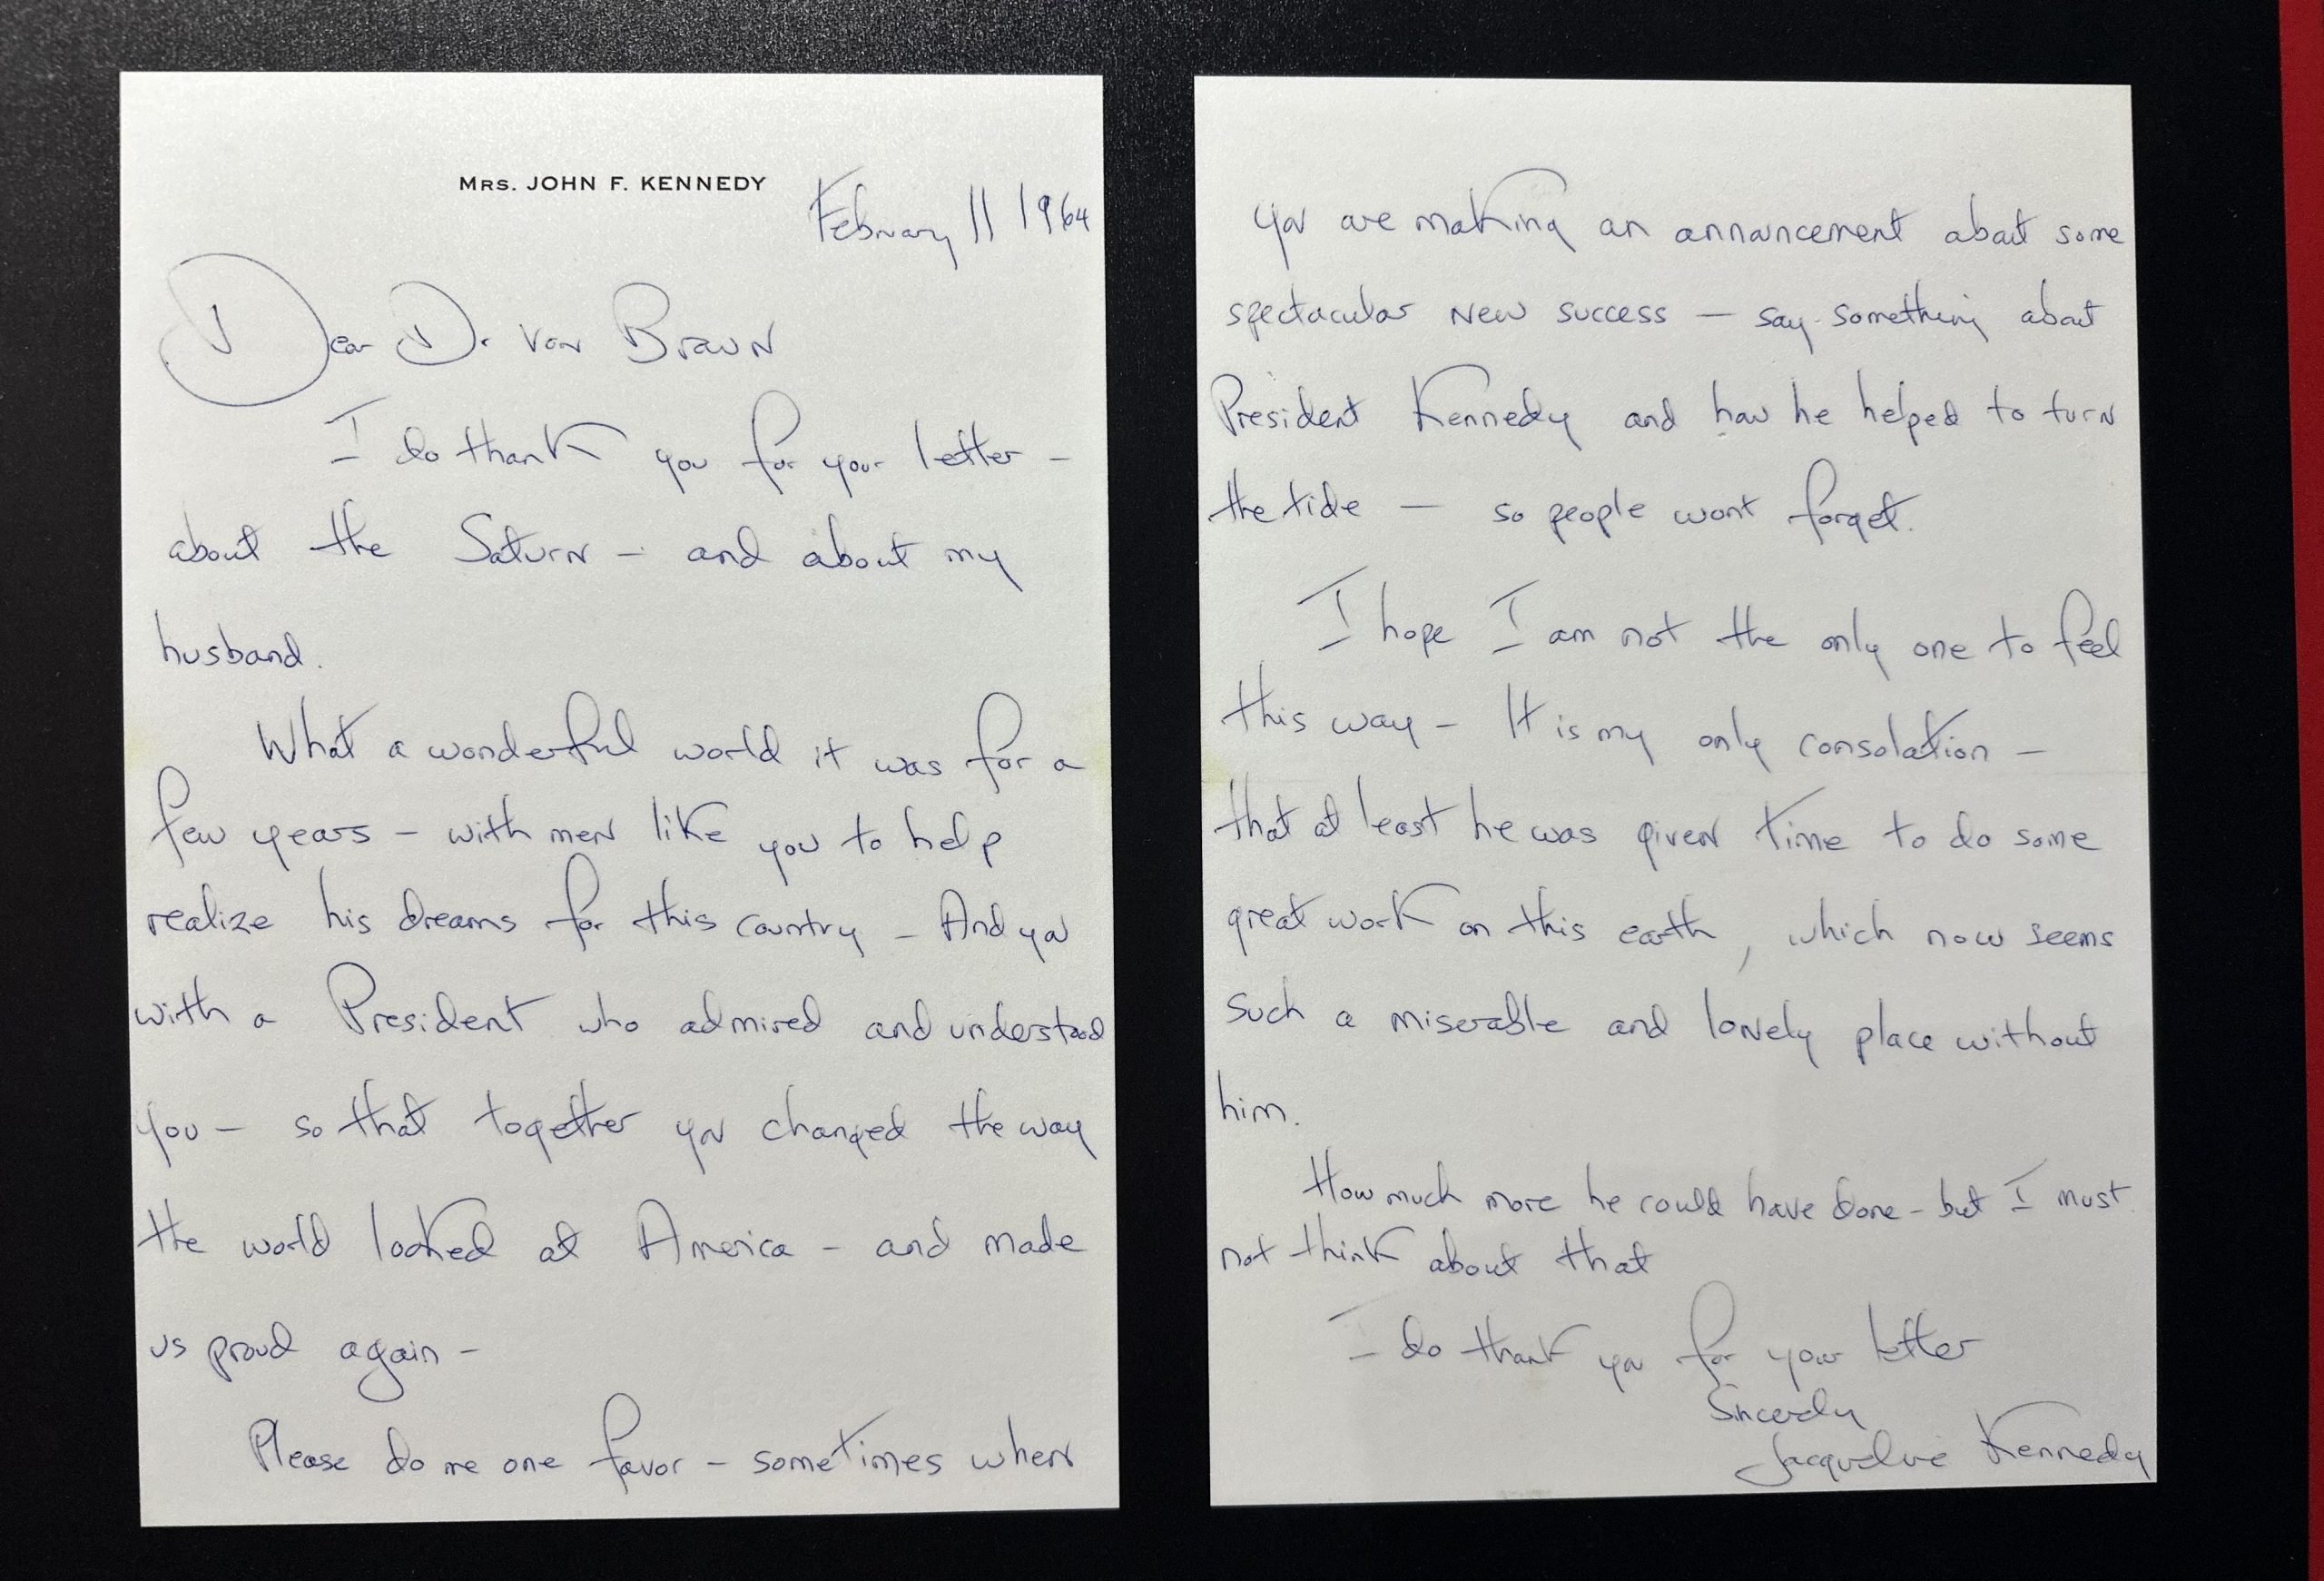 Mrs. JOHN F. KENNEDY
February 11 1964
Dear Dr von Braun
I do thank you for your letter –
about the Saturn – and about my
husband.
What a wonderful world it was for a
few years – with men like you to help
realize his dreams for this country – And you
with a President who admired and understood
you – so that together you changed the way
the world looked at America – and made
us proud again –
Please do me one favor – sometimes when
you are making an announcement about some
spectacular new success – say something about
President Kennedy and how he helped to turn
the tide – so people wont forget.
I hope I am not the only one to feel
this way – It is my only consolation –
that at least he was given time to do some
great work on this earth, which now seems
such a miserable and lonely place without
him.
How much more he could have done – but I must
not think about that
I do thank you for your letter
Sincerely
Jacqueline Kennedy